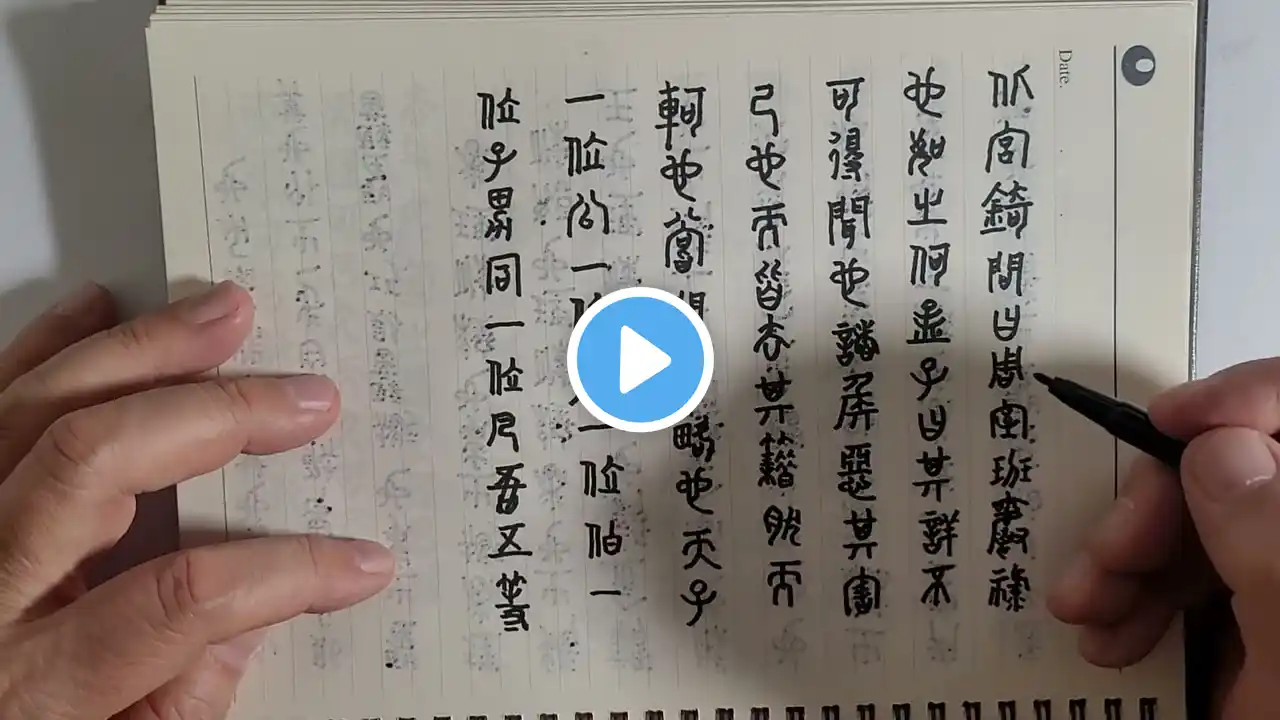 Date.
北宮錡問曰周室班爵祿
也如之何孟子曰其詳不
可得聞也諸侯惡其害
己也而皆去其籍然而
軻也嘗略也天子
一位公一位一位伯一
位子男同一位凡吾五等